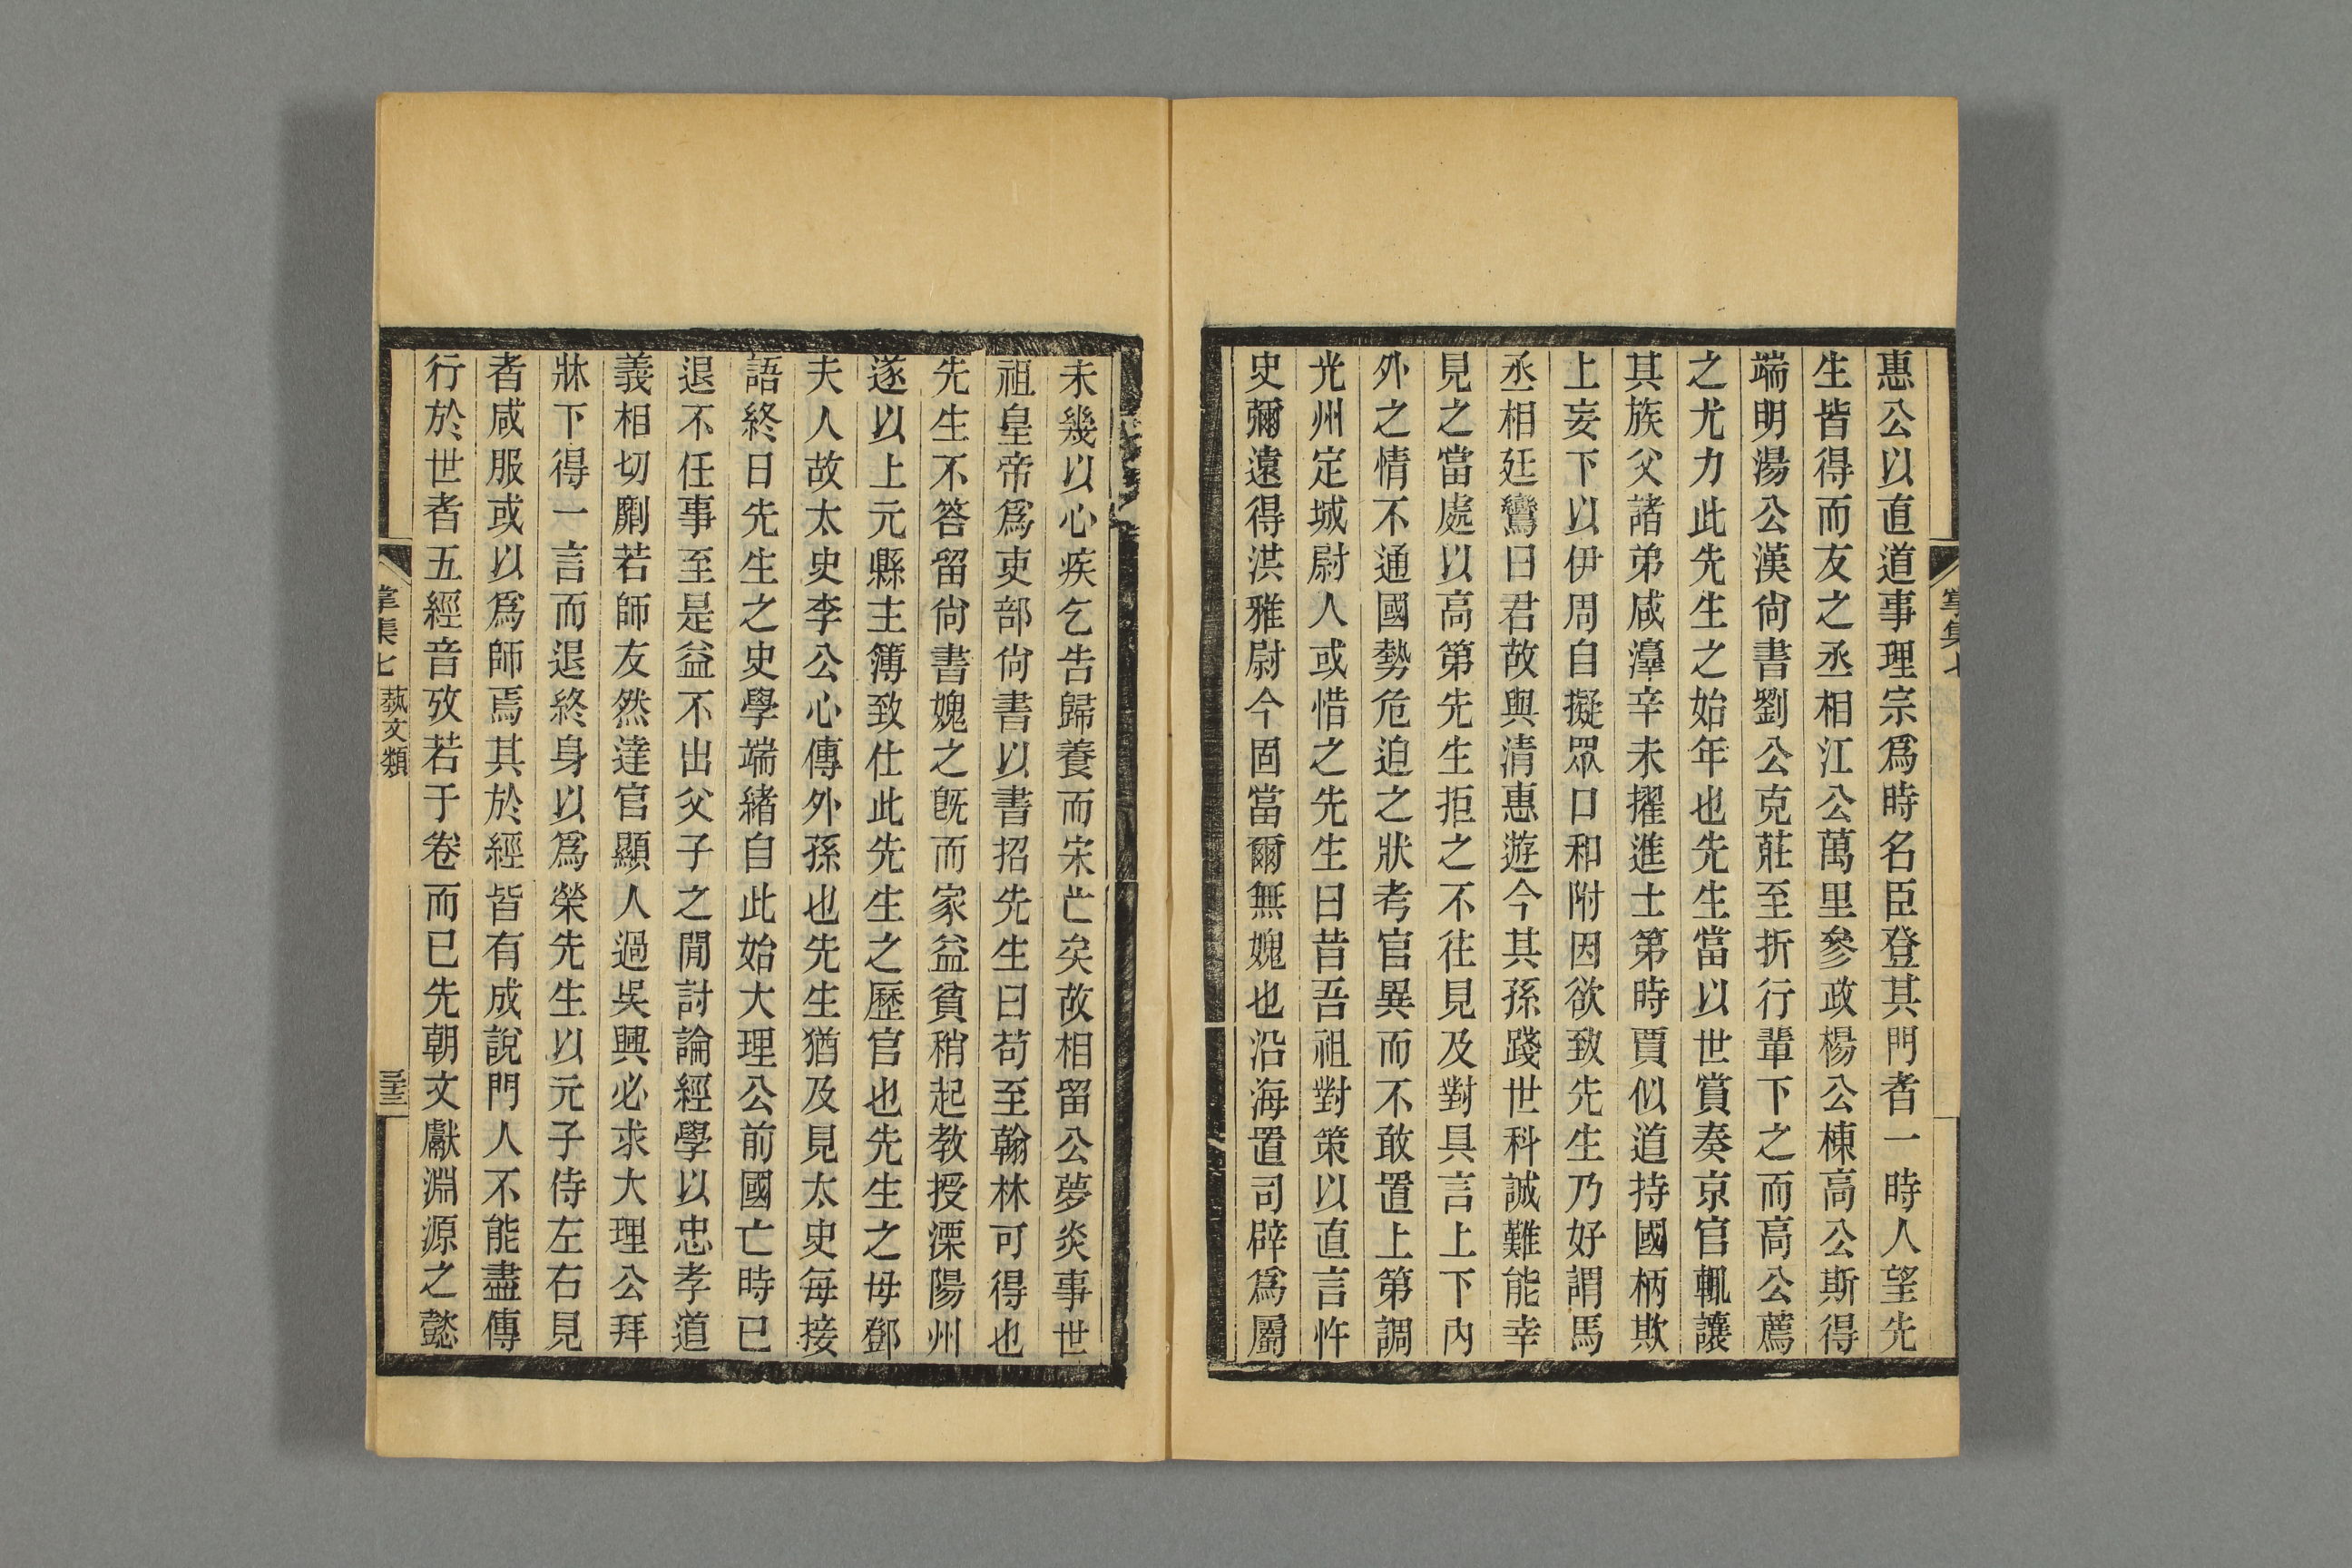 惠公以直道事理宗爲時名臣登其門者一時人望先
生皆得而友之丞相江公萬里參政楊公棟高公斯得
端明湯公漢尙書劉公克莊至折行輩下之而高公薦
之尤力此先生之始年也先生當以世賞奏京官輒讓
其族父諸弟咸湻辛未擢進士第時賈似道持國柄欺
上妄下以伊周自擬眾口和附因欲致先生乃好謂馬
丞相廷鸞曰君故與清惠遊今其孫踐世科誠難能幸
見之當處以高第先生拒之不往見及對具言上下內
外之情不通國勢危迫之狀考官異而不敢置上第調
光州定城尉人或惜之先生曰昔吾祖對策以直言忤
史彌遠得洪雅尉今固當爾無媿也沿海置司辟爲屬
未幾以心疾乞告歸養而宋亡矣故相留公夢炎事世
祖皇帝爲吏部尙書以書招先生曰苟至翰林可得也
先生不答留尙書媿之旣而家益貧稍起教授溧陽州
遂以上元縣主簿致仕此先生之歷官也先生之母鄧
夫人故太史李公心傳外孫也先生猶及見太史每接
語終日先生之史學端緒自此始大理公前國亡時已
退不任事至是益不出父子之閒討論經學以忠孝道
義相切劘若師友然達官顯人過吳興必求大理公拜
牀下得一言而退終身以爲榮先生以元子侍左右見
者咸服或以爲師焉其於經皆有成說門人不能盡傳
行於世者五經音攷若于卷而已先朝文獻淵源之懿
掌集七 藝文類